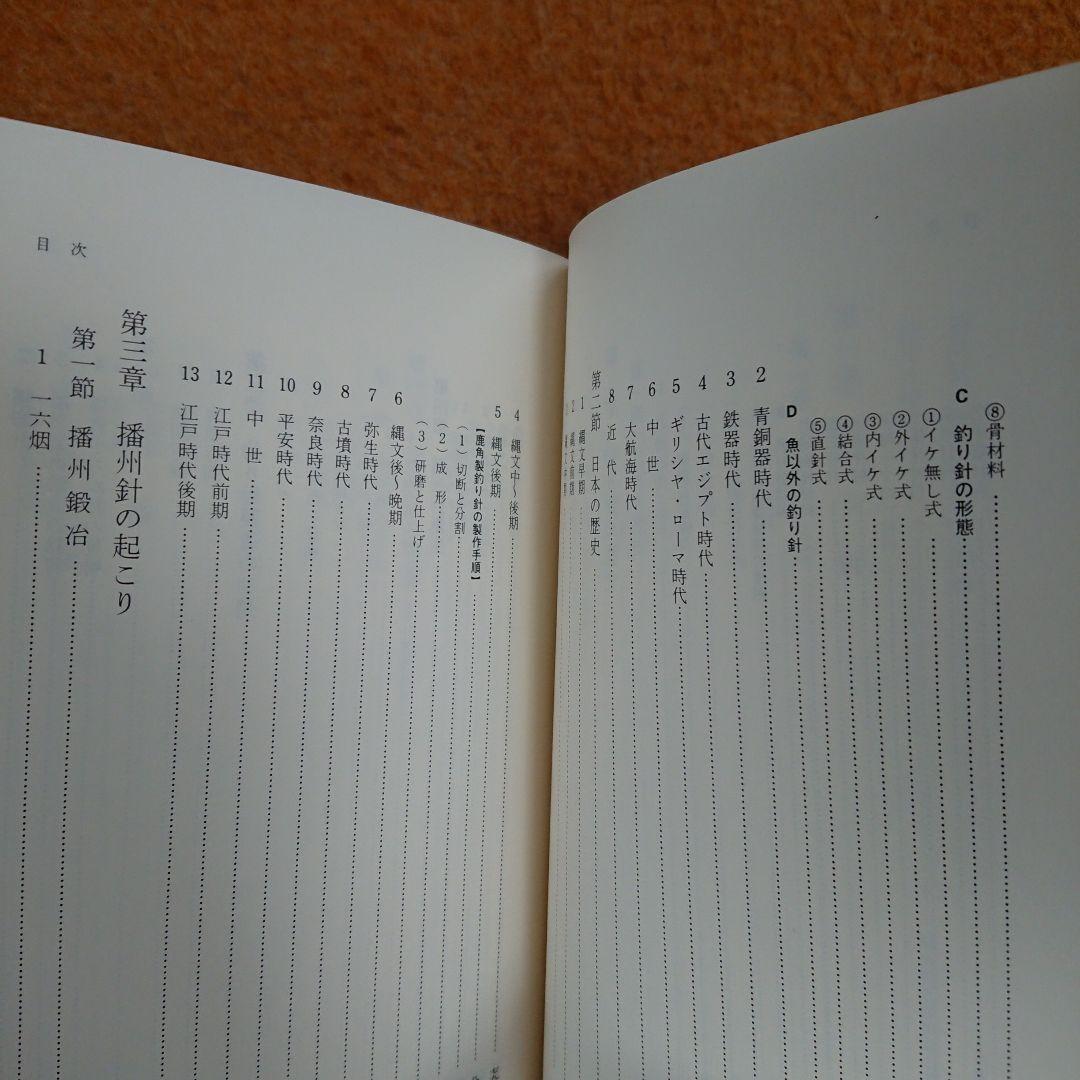 ⑧骨材料
C 釣り針の形態
①イケ無し式
②外イケ式
③内イケ式
④結合式
⑤直針式
D 魚以外の釣り針
2 青銅器時代
3 鉄器時代
4 古代エジプト時代
5 ギリシヤ・ローマ時代
6 中世
7 大航海時代
8 近代
第二節 日本の歴史
1 縄文早期
2 縄文前期
4 縄文中〜後期
5 縄文後期
【鹿角製釣り針の製作手順】
(1) 切断と分割
(2) 成形
(3) 研磨と仕上げ
6 縄文後〜晩期
7 弥生時代
8 古墳時代
9 奈良時代
10 平安時代
11 中世
12 江戸時代前期
13 江戸時代後期
第三章 播州針の起こり
第一節 播州鍛冶
1 一六烟
目次